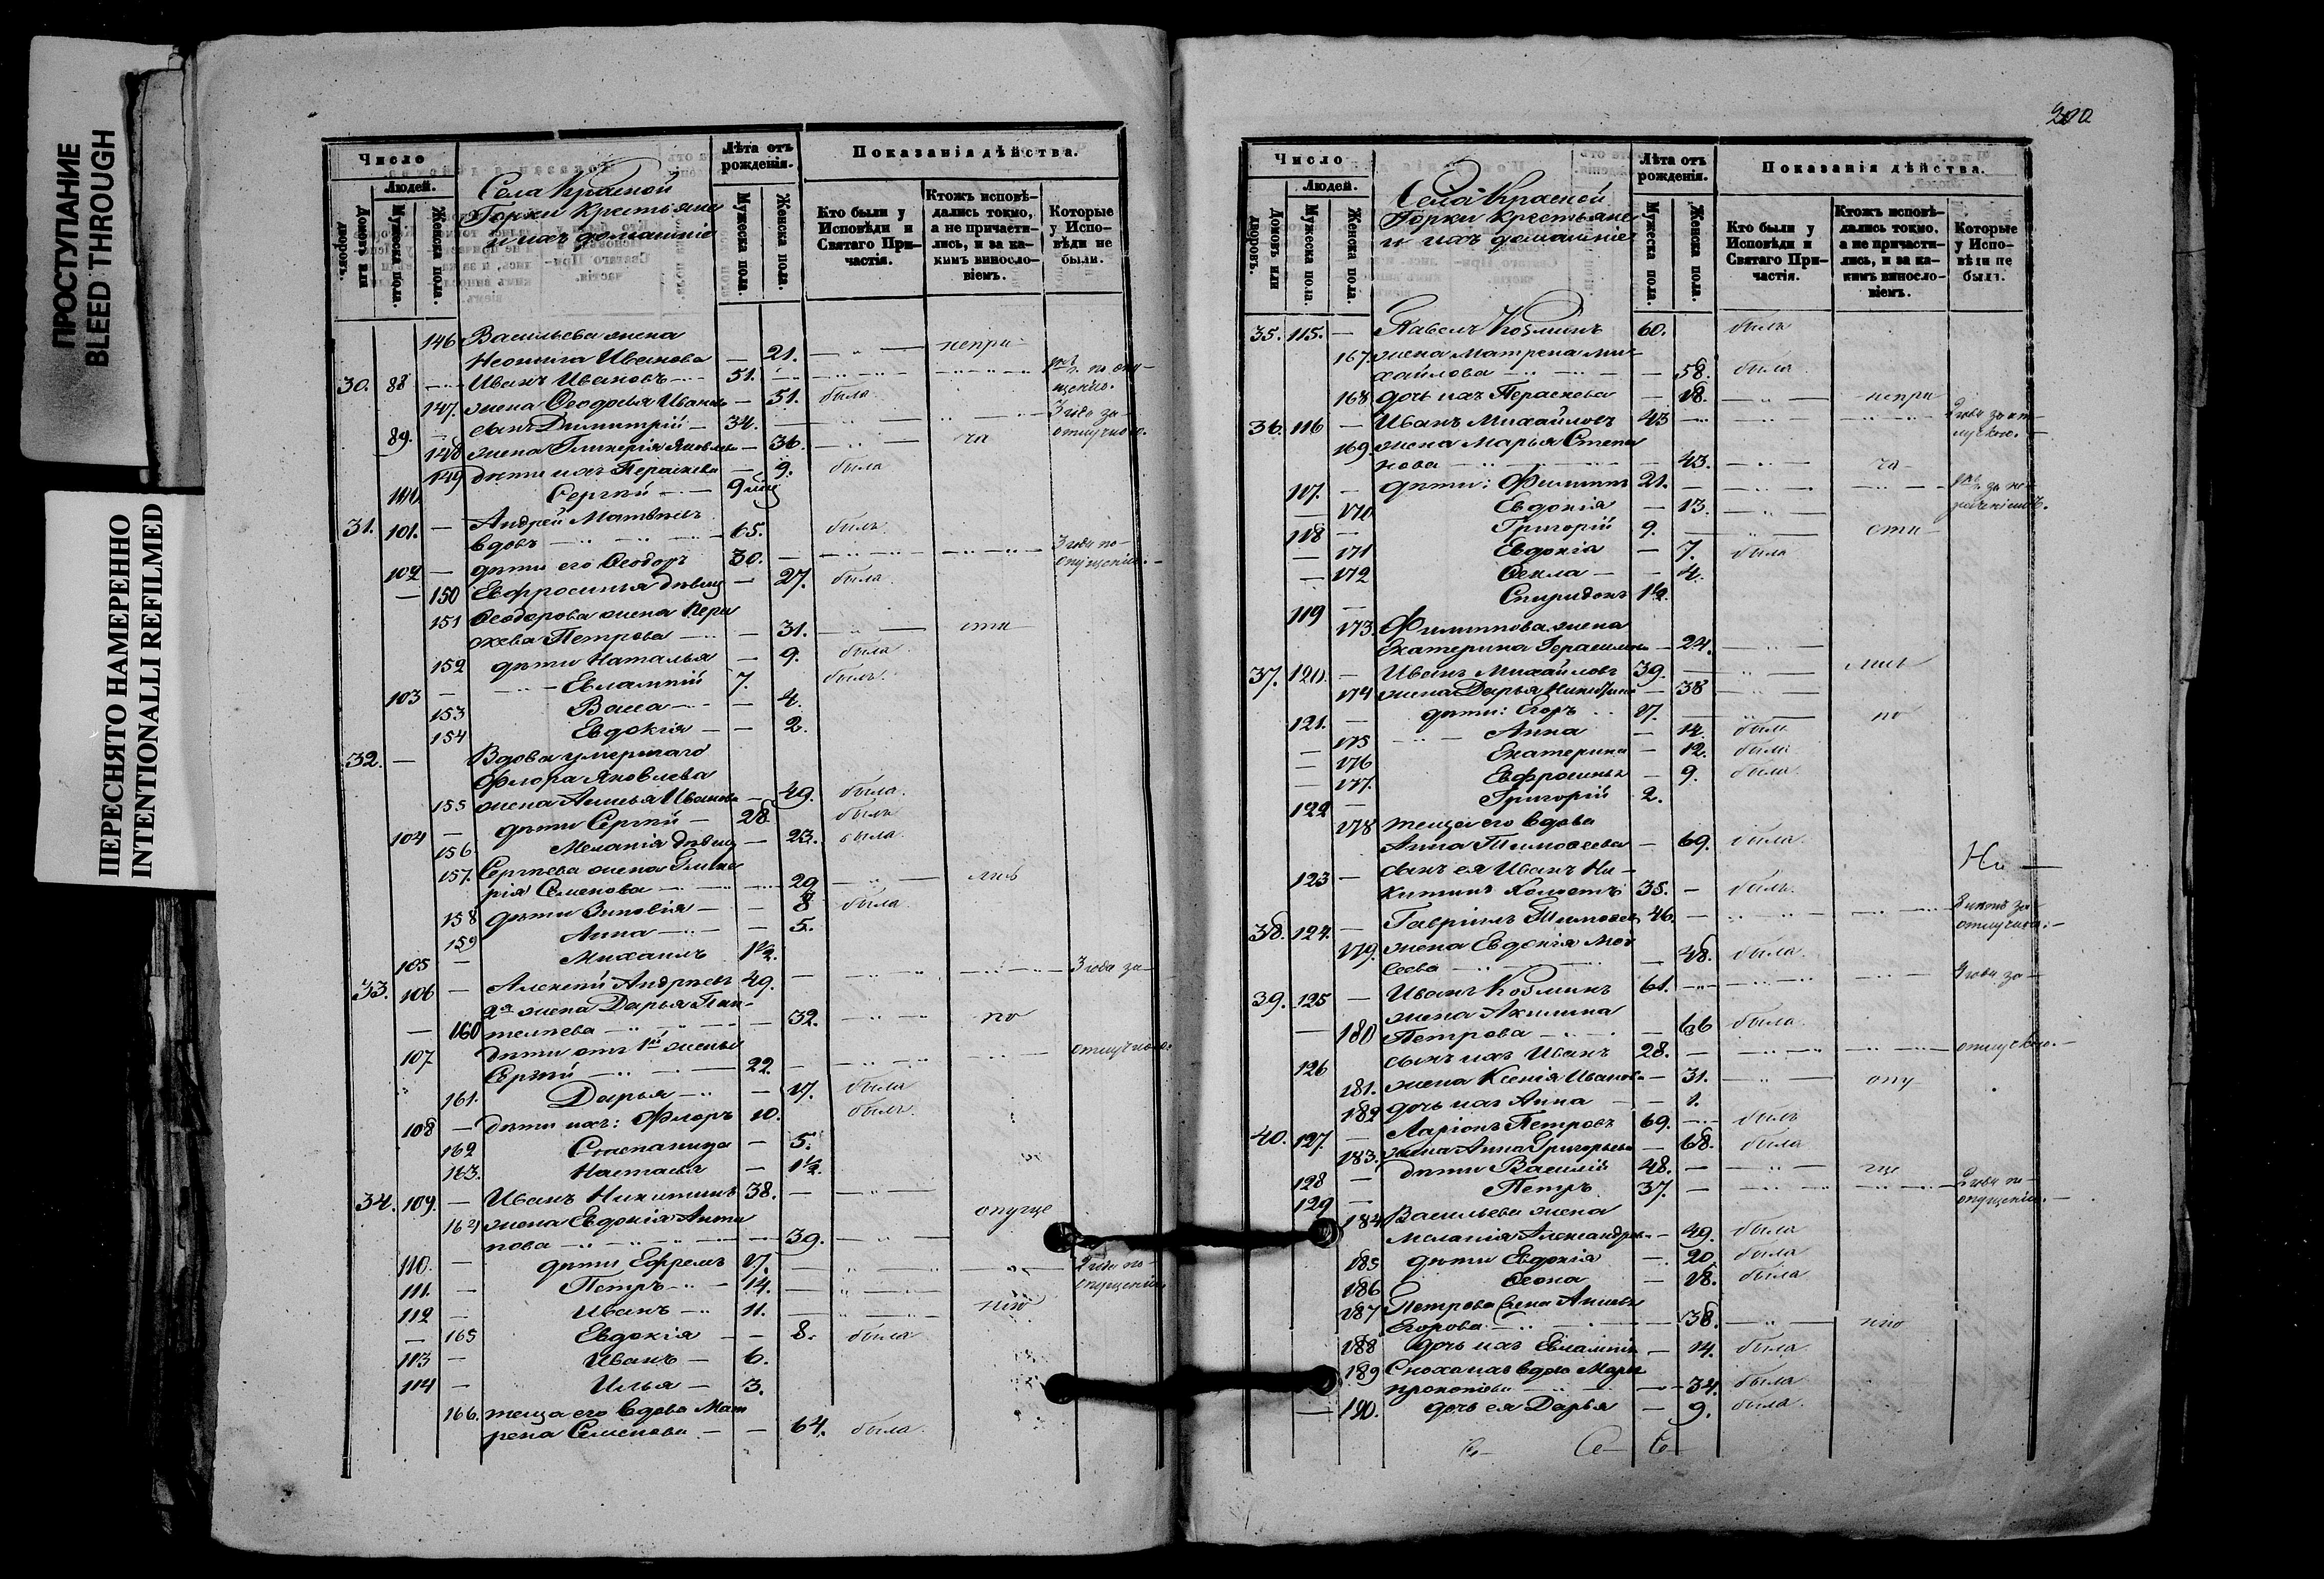 ПРОСТУПАНИЕ
BLEED THROUGH
ПЕРЕСНЯТО НАМЕРЕННО
INTENTIONALLI REFILMED
Число
Людей.
Домовъ или дворовъ.
Мужеска пола.
Женска пола.
Села Красной
Горки крестьяне
и ихъ домашніе
Лѣта отъ рожденія.
Мужеска пола.
Женска пола.
Показанія дѣйства.
Кто были у Исповѣди и Святаго Причастія.
Ктожъ исповѣдались токмо, а не причастились, и за какимъ винословіемъ.
Которые у Исповѣди не были.
146 Васильева жена
Неонила Иванова — 21. непри-
30. 88 Иванъ Ивановъ 51. по опу-
щенію.
147. жена Ѳеодосья Иванова — 51. была 3 года за-
89. сынъ Димитрій 34. отлучкою.
148 жена Гликерія — 36. ча
149 дѣти ихъ Параскева — 9. была
100 Сергій 9 мѣс
31. 101. — Андрей Матвѣевъ
вдовъ 65. былъ
102 — дѣти его Ѳеодоръ 30. 3 года по-
опущенію.
150 Евфросинья дѣвиц — 27. была
151 Ѳеодорова жена Пера
скева Петрова — 31. сти
152 дѣти Наталья — 9. была
103 — Евлампій 7. былъ.
153 Васса — 4.
154 Евдокія — 2.
32. — Вдова умершаго
Флора Яковлева
155 жена Анисья Иванова — 49. была.
104 — дѣти Сергій — 28. былъ
156. Меланія дѣвиц — 23. была.
157. Сергѣева жена Глике
рія Семенова 29 лись
158 дѣти Зиновія — 8 была
159 Анна — 5.
105 — Михаилъ 1½.
33. 106 — Алексѣй Андреевъ 49. 3 года за-
2я жена Дарья Пан-
160 телѣева — 32. по
107 дѣти отъ 1й жены
Сергій 22. отлучкою
161. Дарья — 17. была
108 — дѣти ихъ: Флоръ 10. былъ.
162 Степанида — 5.
163. Наталья — 1½.
34. 109. — Иванъ Никитинъ 38.
164 жена Евдокія Анти опуще
пова 39.
110. — дѣти Ефремъ 17. 2 года по-
111. — Петръ 14. опущенію
112 — Иванъ 11. нію
165 Евдокія — 8. была
113 — Иванъ — 6.
114 — Илья — 3.
166. теща его вдова Мат
рена Семенова — 64. была.
Число
Людей.
Домовъ или дворовъ.
Мужеска пола.
Женска пола.
Села Красной
Горки крестьяне
и ихъ домашніе
Лѣта отъ рожденія.
Мужеска пола.
Женска пола.
Показанія дѣйства.
Кто были у Исповѣди и Святаго Причастія.
Ктожъ исповѣдались токмо, а не причастились, и за какимъ винословіемъ.
Которые у Исповѣди не были.
35. 115. — Павелъ Козминъ 60. былъ
167. жена Матрена Ми-
хайлова — 58. была
168 дочь ихъ Параскева — 18. непри
36. 116 — Иванъ Михайловъ 43 2 года за от-
лучкою.
169. жена Марья Степа
нова — 43. ча-
117. — дѣти: Филиппъ 21.
170 Евдокія — 13.
118 — Григорій 9. сти-
171 Евдокія — 7. была
172 Ѳекла — 4.
119 — Спиридонъ 1½.
173. Филиппова жена
Екатерина Герасимова — 24.
37. 120. — Иванъ Михайловъ 39. лись
174 жена Дарья Никитина — 38
121. — дѣти: Егоръ 17. по
175 Анна — 14. была
176 Екатерина — 12. была
177. Евфросинья — 9. была.
122 — Григорій 2.
178 теща его вдова
Анна Тимоѳеева — 69. была.
123 — сынъ ея Иванъ Ни-
китинъ холостъ 35. — былъ.
38. 124. — Гавріилъ Тимоѳеев 46. за
отлучкою.
179. жена Евдокія Мои
сеева — 48. была.
39. 125 — Иванъ Козминъ 61. 3 года за-
жена Акилина
180 Петрова — 66 была.
126 сынъ ихъ Иванъ 28. отлучкою.
181. жена Ксенія Иванова — 31. опу
182 дочь ихъ Анна — 1.
40. 127. — Ларіонъ Петровъ 69. былъ
183. жена Анна Григорьева — 68. была
128 — дѣти Василій 48. ще
129 — Петръ 37. 2 года по-
опущенію.
184 Васильева жена
Меланія Александрова — 49. была
185 дѣти Евдокія — 20. была
186 Ѳеона — 18. была
187 Петрова жена Анисья
Егорова 38. нію
188 дочь ихъ Евлампія — 14. была
189 Сноха ихъ вдова Марѳа
Прокопіева 34. была
190. дочь ея Дарья — 9. была.